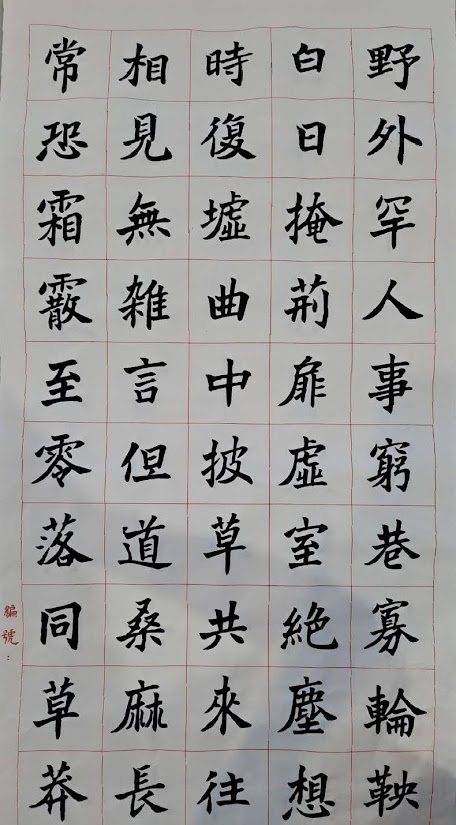 野外罕人事窮巷寡輪鞅
白日掩荊扉虛室絕塵想
時復墟曲中披草共來往
相見無雜言但道桑麻長
常恐霜霰至零落同草莽
編號: